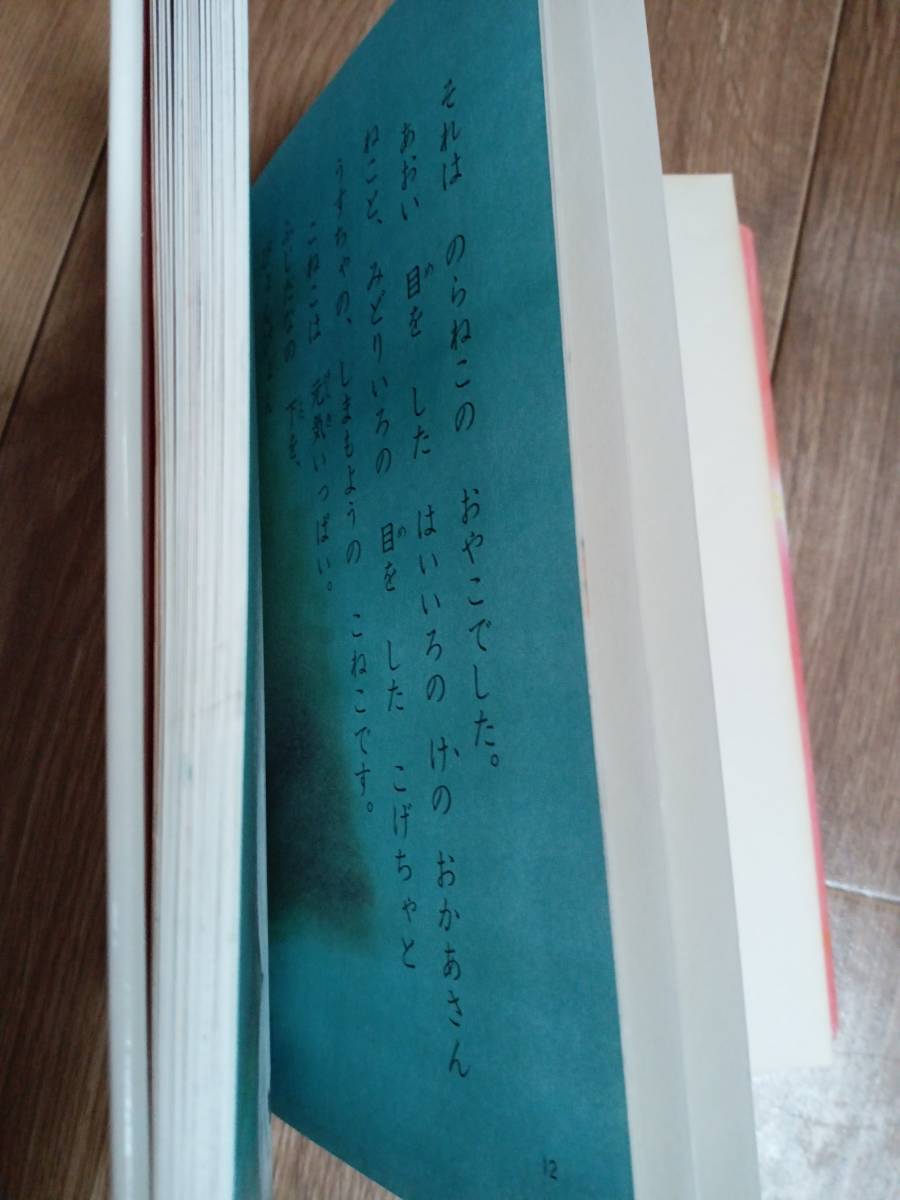 それは のらねこの おやこでした。
あおい 目を した はいいろの けの おかあさん
ねこと、みどりいろの 目を した こげちゃと
うすちゃの、しまもようの こねこです。
こねこは 元気いっぱい。
ふじだなの 下を、
12